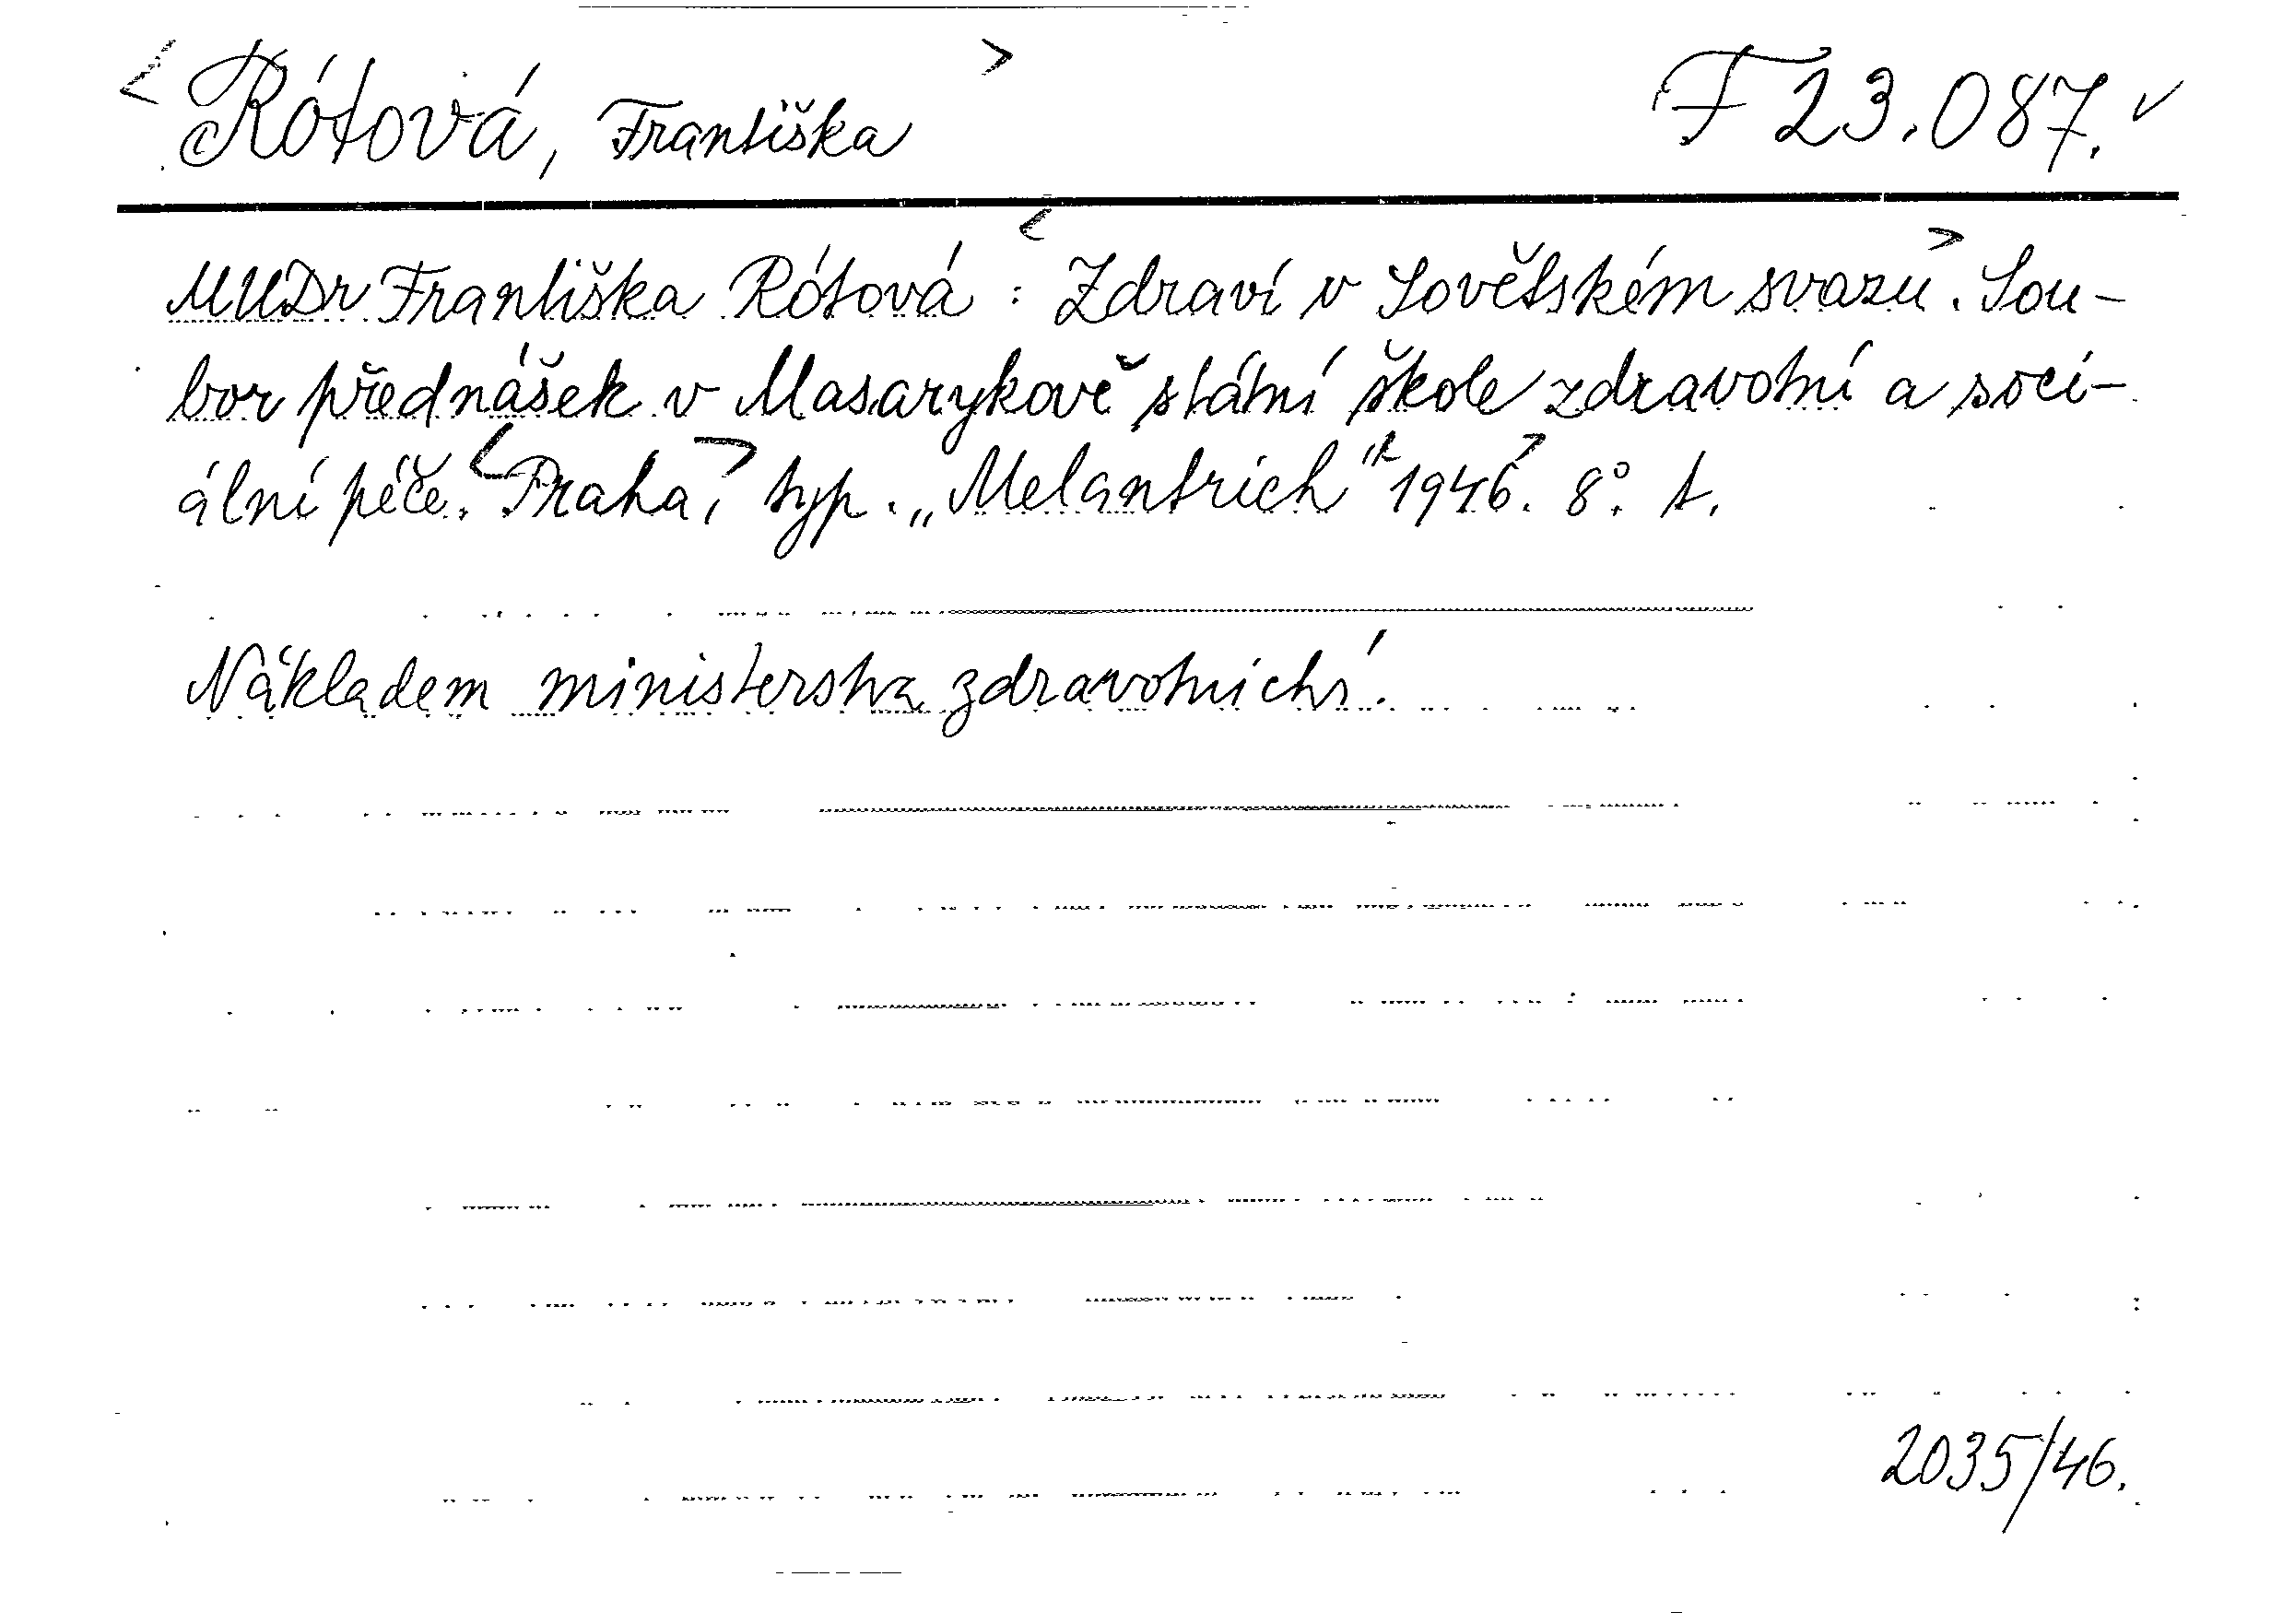 < Rótová, Františka > F 23.087. ✓
MUDr Františka Rótová : < Zdraví v Sovětském svazu >. Sou-
bor přednášek v Masarykově státní škole zdravotní a soci-
ální péče. < Praha, > typ. „Melantrich" 1946. 8°. t.
Nákladem ministerstva zdravotnictví.
2035/46.